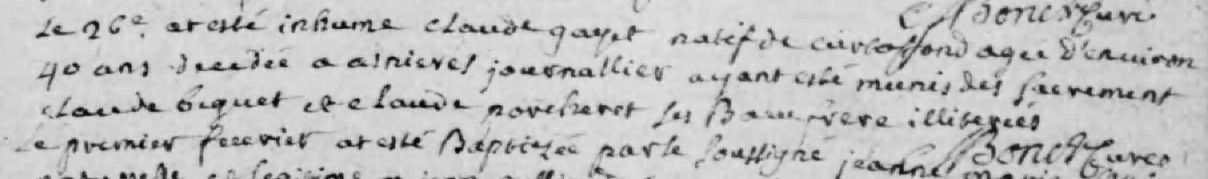 Bonet Curé
Le 26e. at esté inhumé claude gayet natif de curtafond agée d'environ
40 ans decedée a asnieres journallier ayant esté munis des sacrement
claude biguet et claude porcheret ses Baux frere illiterées
Le premier fevrier at esté Baptizée par le soussigné jeanne marie
Bonet Curé